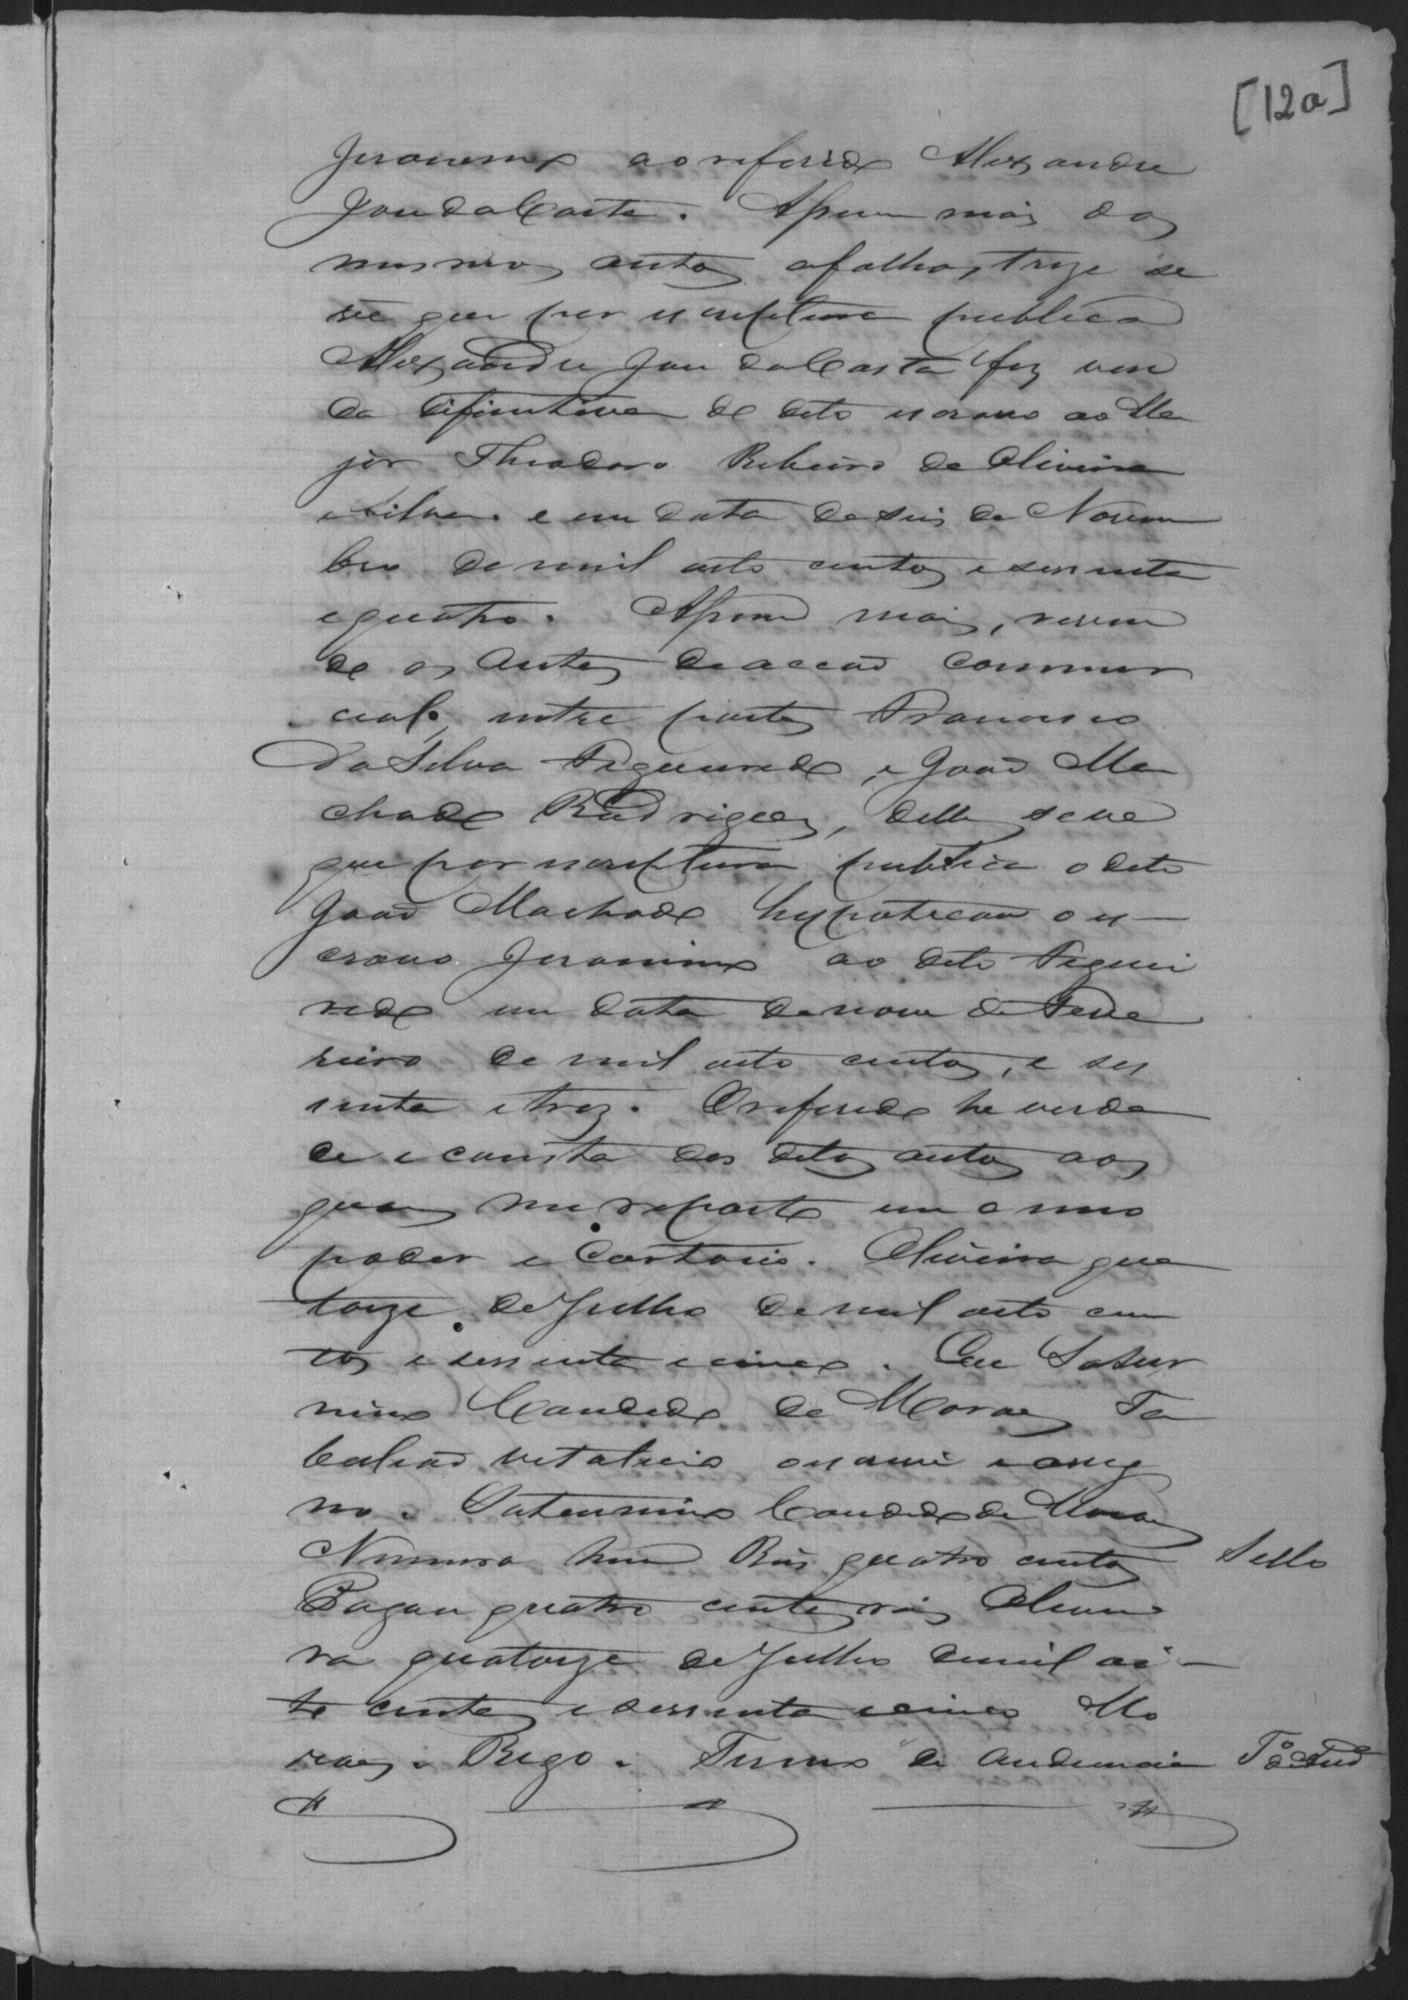 [12a]
Jeronimo ao referido Alexandre
José da Costa. Apenso mais dos
mesmos autos a folhas treze se
vê que por escriptura publica
Alexandre José da Costa fez ven
da difinitiva de dito escravo ao Ma
jor Theodoro Ribeiro de Oliveira
e Silva. e em data de seis de Novem
bro de mil oito centos e sessenta
e quatro. mais, reven
do os Autos de acção commer
cial, entre partes Francisco
da Silva Figueiredo, e João Ma
chado Rodrigues, delles se ve
que por escriptura publica o dito
João Machado hypothecou o es-
cravo Jeronimo ao dito Figuei
redo em data de nove de Feve
reiro de mil oito centos, e ses
senta e trez. O referido he verda
de e consta dos ditos autos aos
quaes me reporto em o meo
poder e Cartorio. Oliveira qua
torze de Julho de mil oito cen
tos e sessenta e cinco. Eu Satur
nino Candido de Moraes Ta
belião vitalicio escrevi e assig
no. Saturnino Candido de Moraes
Numero hum Reis quatro centos Sello
Pagou quatro centos reis Olivei
ra quatorze de Julho de mil oi-
to centos e sessenta e cinco Mo
raes. Rego. Termo de Audiencia Tº de Aud